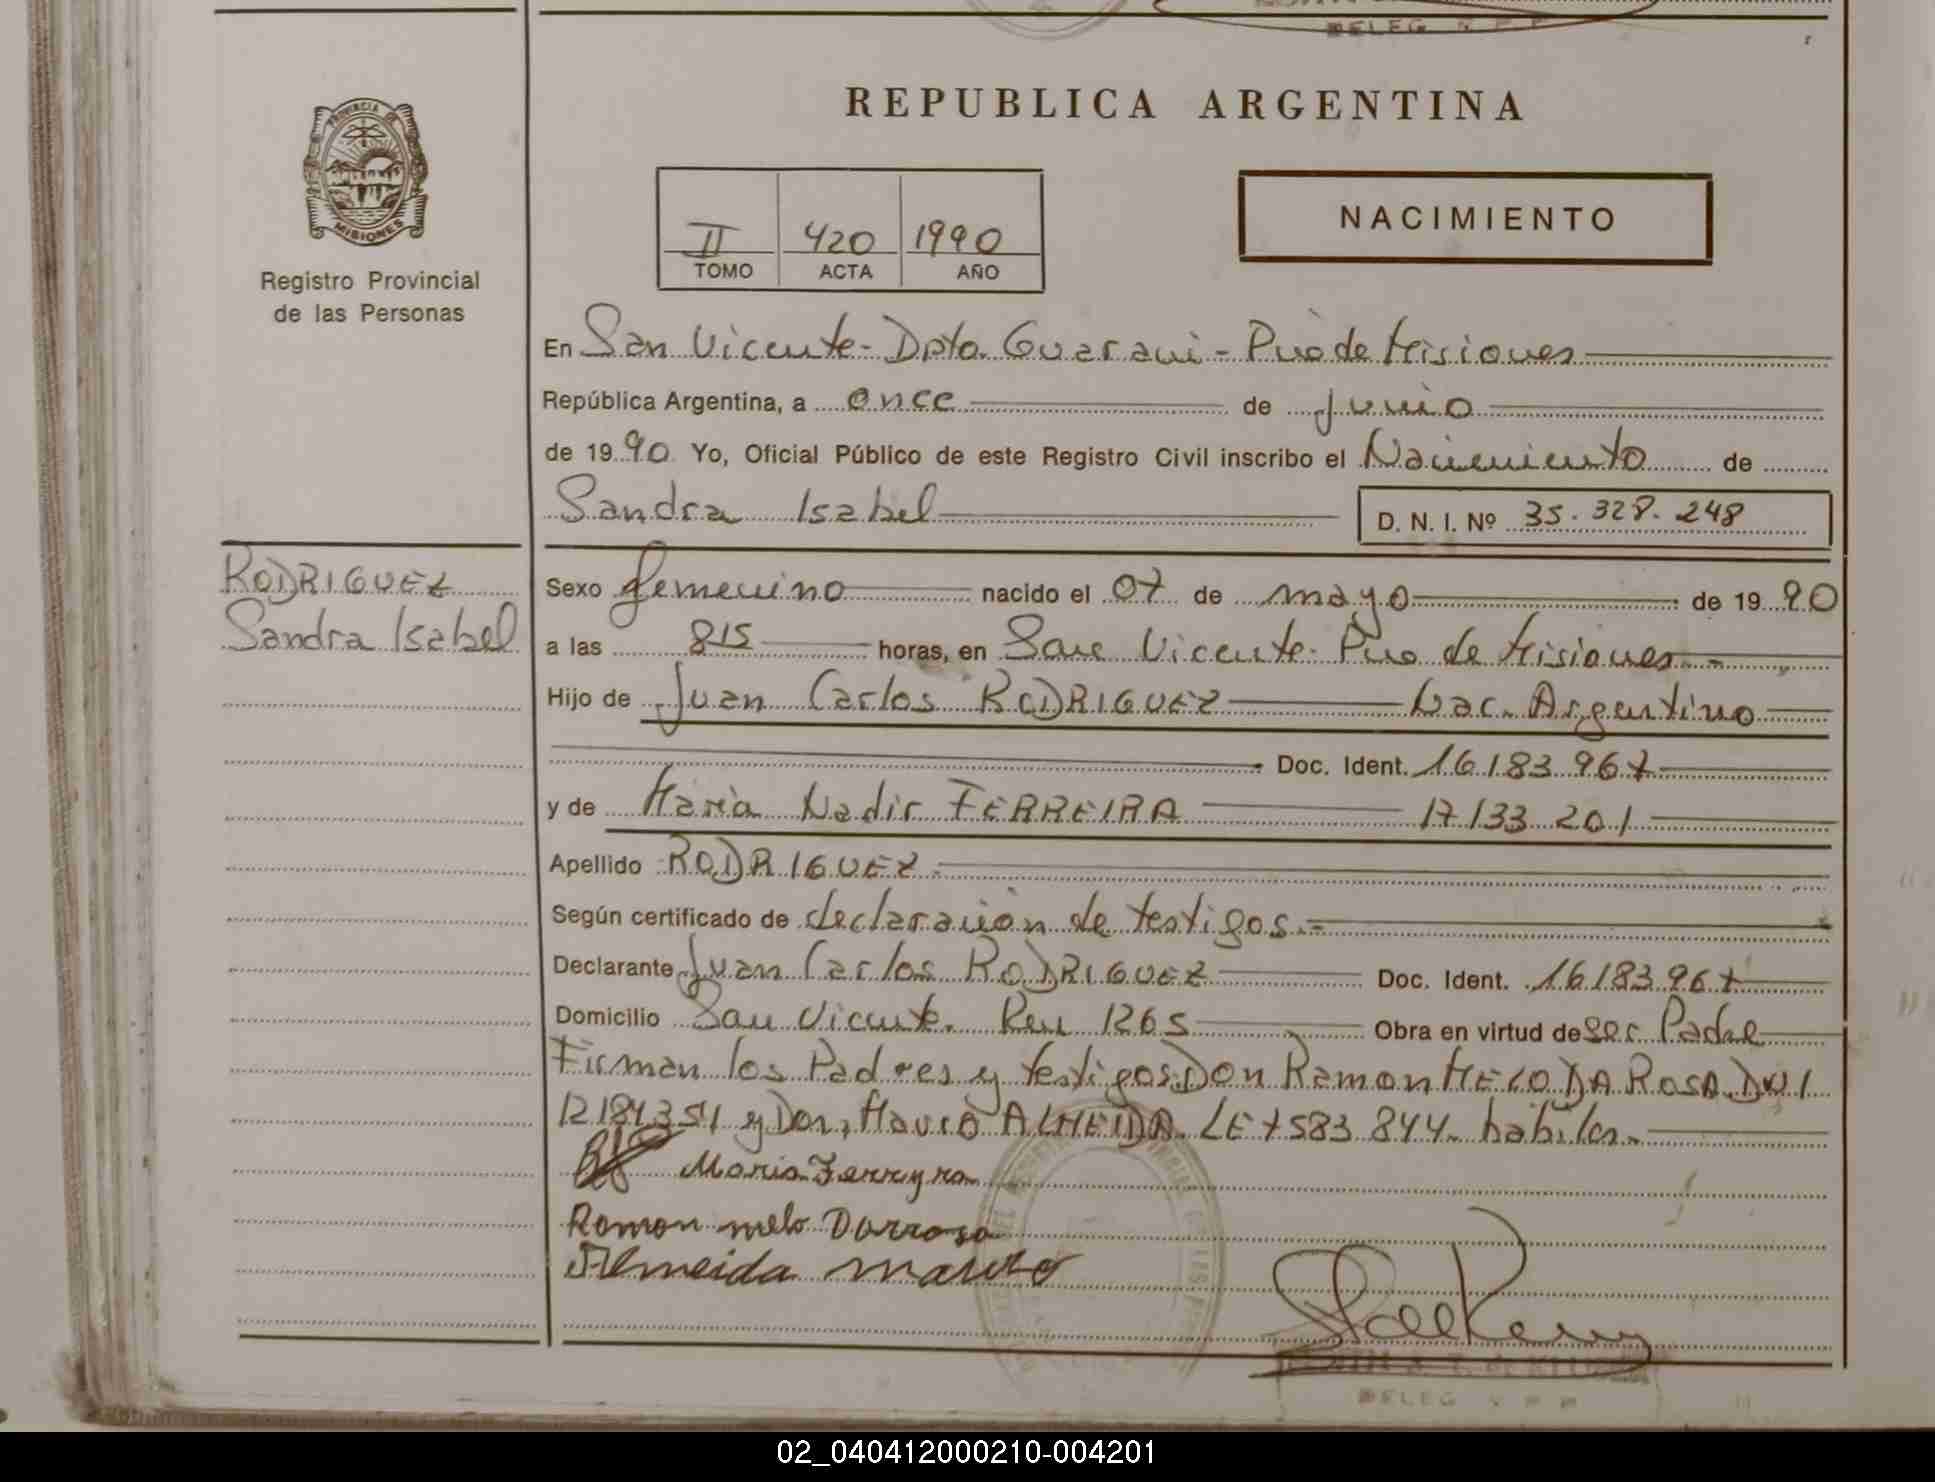 DELEG R P P
REPUBLICA ARGENTINA
PROVINCIA DE MISIONES
Registro Provincial
de las Personas
II 420 1990
TOMO ACTA AÑO
NACIMIENTO
En San Vicente - Dpto. Guarani - Pcia de Misiones
República Argentina, a once de Junio
de 1990 Yo, Oficial Público de este Registro Civil inscribo el Nacimiento de
Sandra Isabel D. N. I. Nº 35.328.248
RODRIGUEZ
Sandra Isabel
Sexo femenino nacido el 07 de mayo de 1990
a las 815 horas, en San Vicente. Pcia de Misiones.-
Hijo de Juan Carlos RODRIGUEZ Nac. Argentino
Doc. Ident. 16183967
y de Maria Nadir FERREIRA 17133201
Apellido RODRIGUEZ.
Según certificado de declaración de testigos.-
Declarante Juan Carlos RODRIGUEZ Doc. Ident. 16183967
Domicilio San Vicente. Km 1265 Obra en virtud de ser Padre
Firman los Padres y testigos Don Ramon MELO DA ROSA DNI
12184354 y Don, Mauro ALMEIDA LE 7583844. habiles.
Maria Ferreyra
Ramon melo Darrosa
Almeida mauro
DELEG R P P
02_040412000210-004201